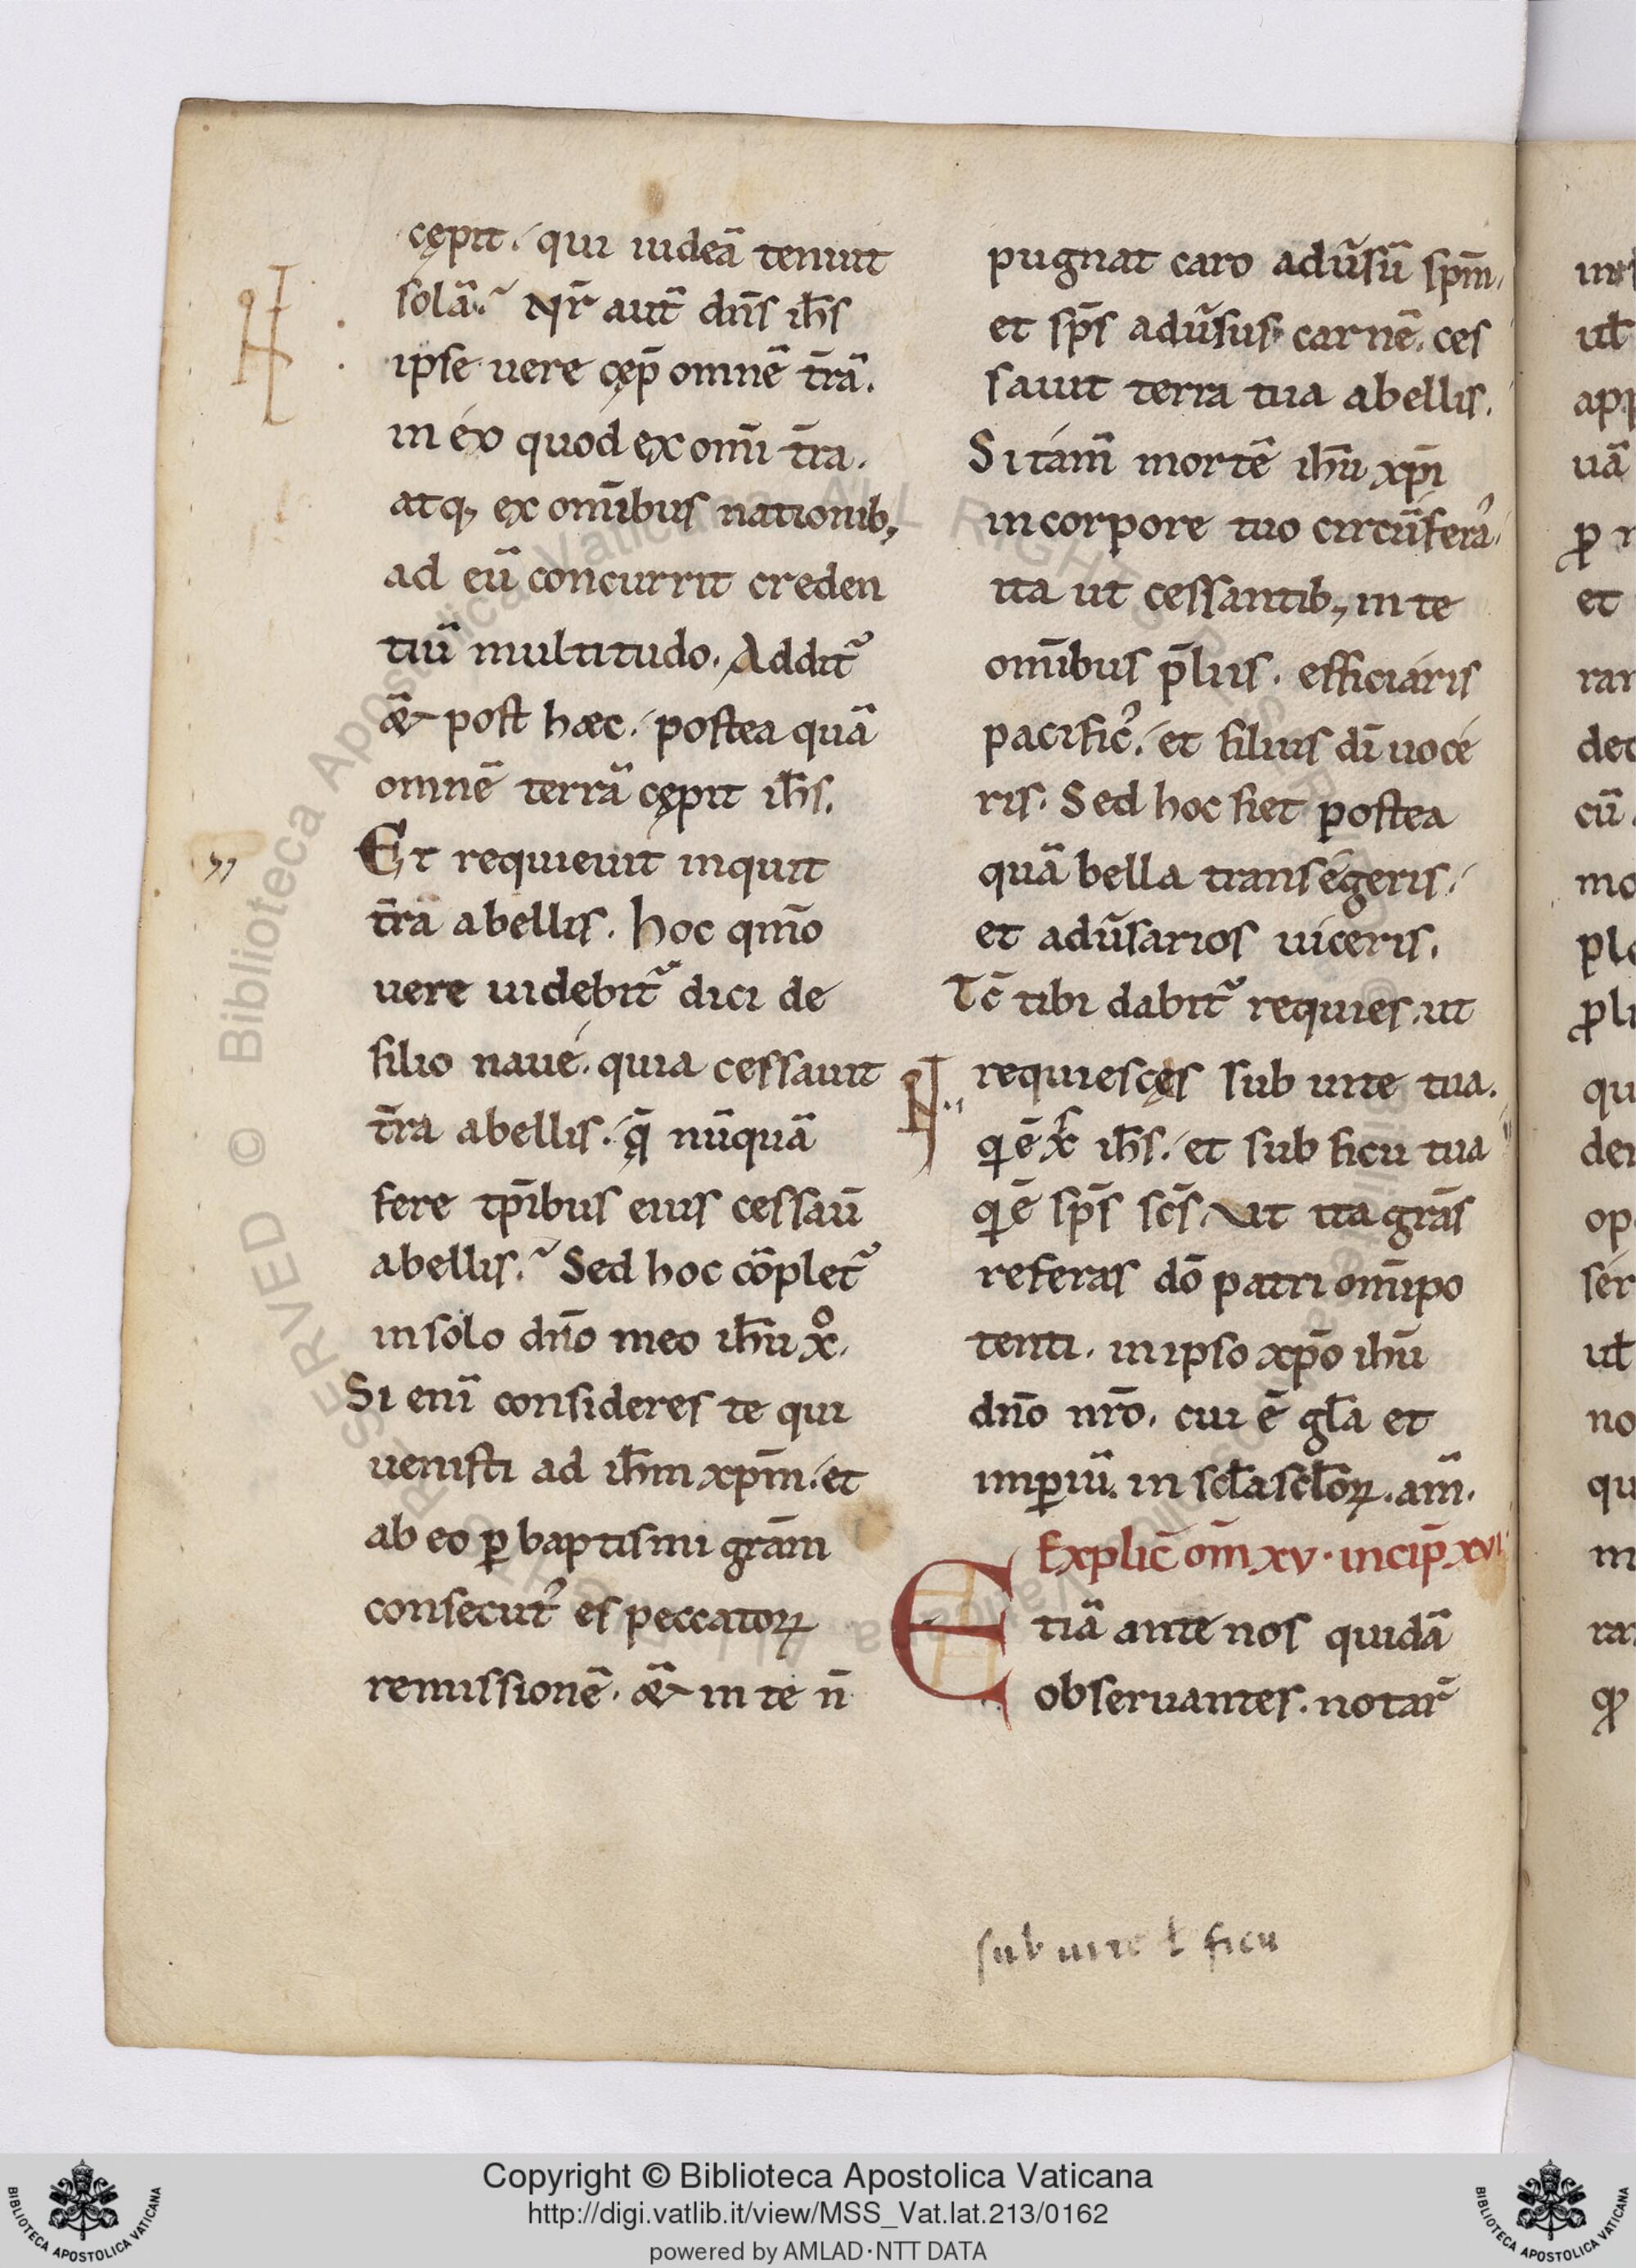 cępit. qui iudeã tenuit
solã. Nr̄ aut̃ dn̄s ih̄s
ipse uere cęp̄ omnẽ t̄rã.
in eo quod ex om̄i t̄ra.
atq; ex om̄ibus nationib;
ad eũ concurrit creden
tiũ multitudo. Addit᷑
&̃ post hæc. postea quã
omnẽ terrã cępit ih̄s.
Et requieuit inquit
t̄ra abellis. hoc qm̄o
uere uidebit᷑ dici de
filio naue. quia cessauit
t̄ra abellis. q̄ nũquã
fere tp̄ibus eius cessaũ
abellis. Sed hoc cõplet᷑
in solo dn̄o meo ih̄u xͦ.
Si enĩ consideres te qui
uenisti ad ih̄m xp̄m. et
ab eo ꝑ baptismi grãm
consecutꝰ es peccatoꝝ
remissionẽ. &̃ in te n̄
pugnat caro adũsũ sp̄m,
et sp̄s adũsus carnẽ. ces
sauit terra tua abellis.
Si tam̃ mortẽ ih̄u xp̄i
incorpore tuo circũferas
ita ut cessantib; in te
om̄ibus p̄liis. efficiaris
pacificꝰ. et filius dī uoce
ris. Sed hoc fiet postea
quã bella transegeris.
et adũsarios uiceris.
Tc̄ tibi dabit᷑ requies. ut
requiescęs sub uite tua.
q̄ ē xc̄ ih̄s. et sub ficu tua
q̄ ē sp̄s sc̄s. Ut ita grãs
referas dō patri om̄ipo
tenti. in ipso xp̄o ih̄u
dn̄o nr̄o. cui ē gl̄a et
imꝑiũ. in scl̄a scl̄oꝝ. am̃.
Explic̄ om̄ xv. incip̄ xvi
Etiã ante nos quidã
obseruantes. notar̃
sub uite ł ficu
Copyright © Biblioteca Apostolica Vaticana
http://digi.vatlib.it/view/MSS_Vat.lat.213/0162
powered by AMLAD·NTT DATA